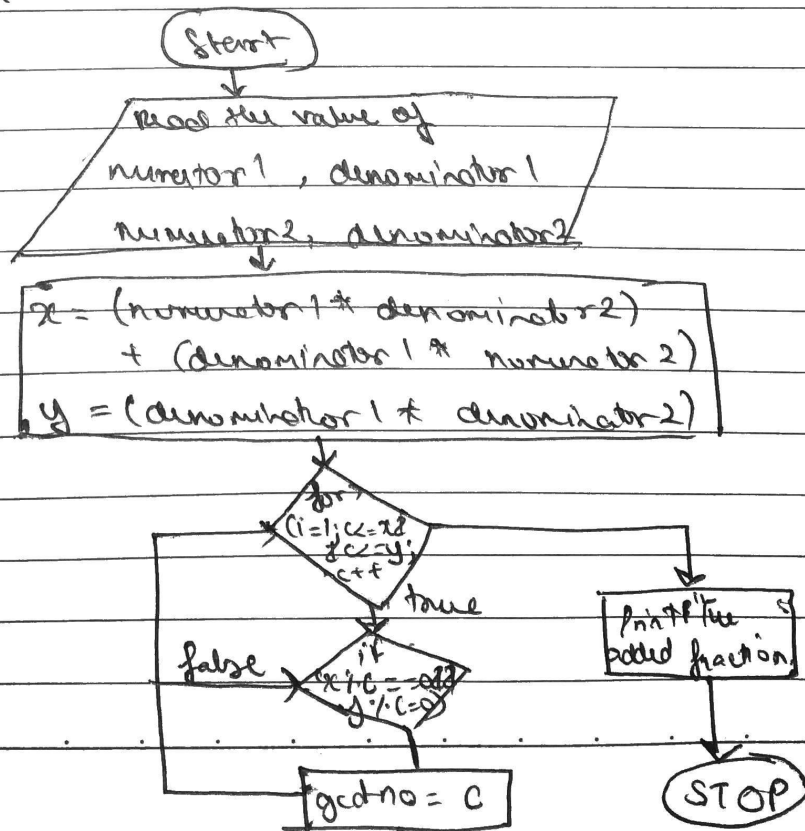 Start
Read the value of
numrator1 , denominator1
numerator2, denominator2
x = (numerator1 * denominator2)
+ (denominator1 * numerator2)
y = (denominator1 * denominator2)
for
(i=1; c<=x &
& c<=y;
c++
true
if
false
x % c == 0 &&
y % c = 0)
gcdno = c
Printf the
added fraction
STOP